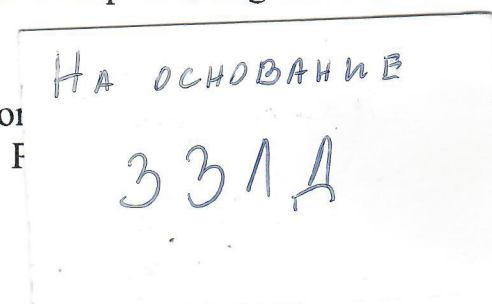 На основание
ЗЗЛД